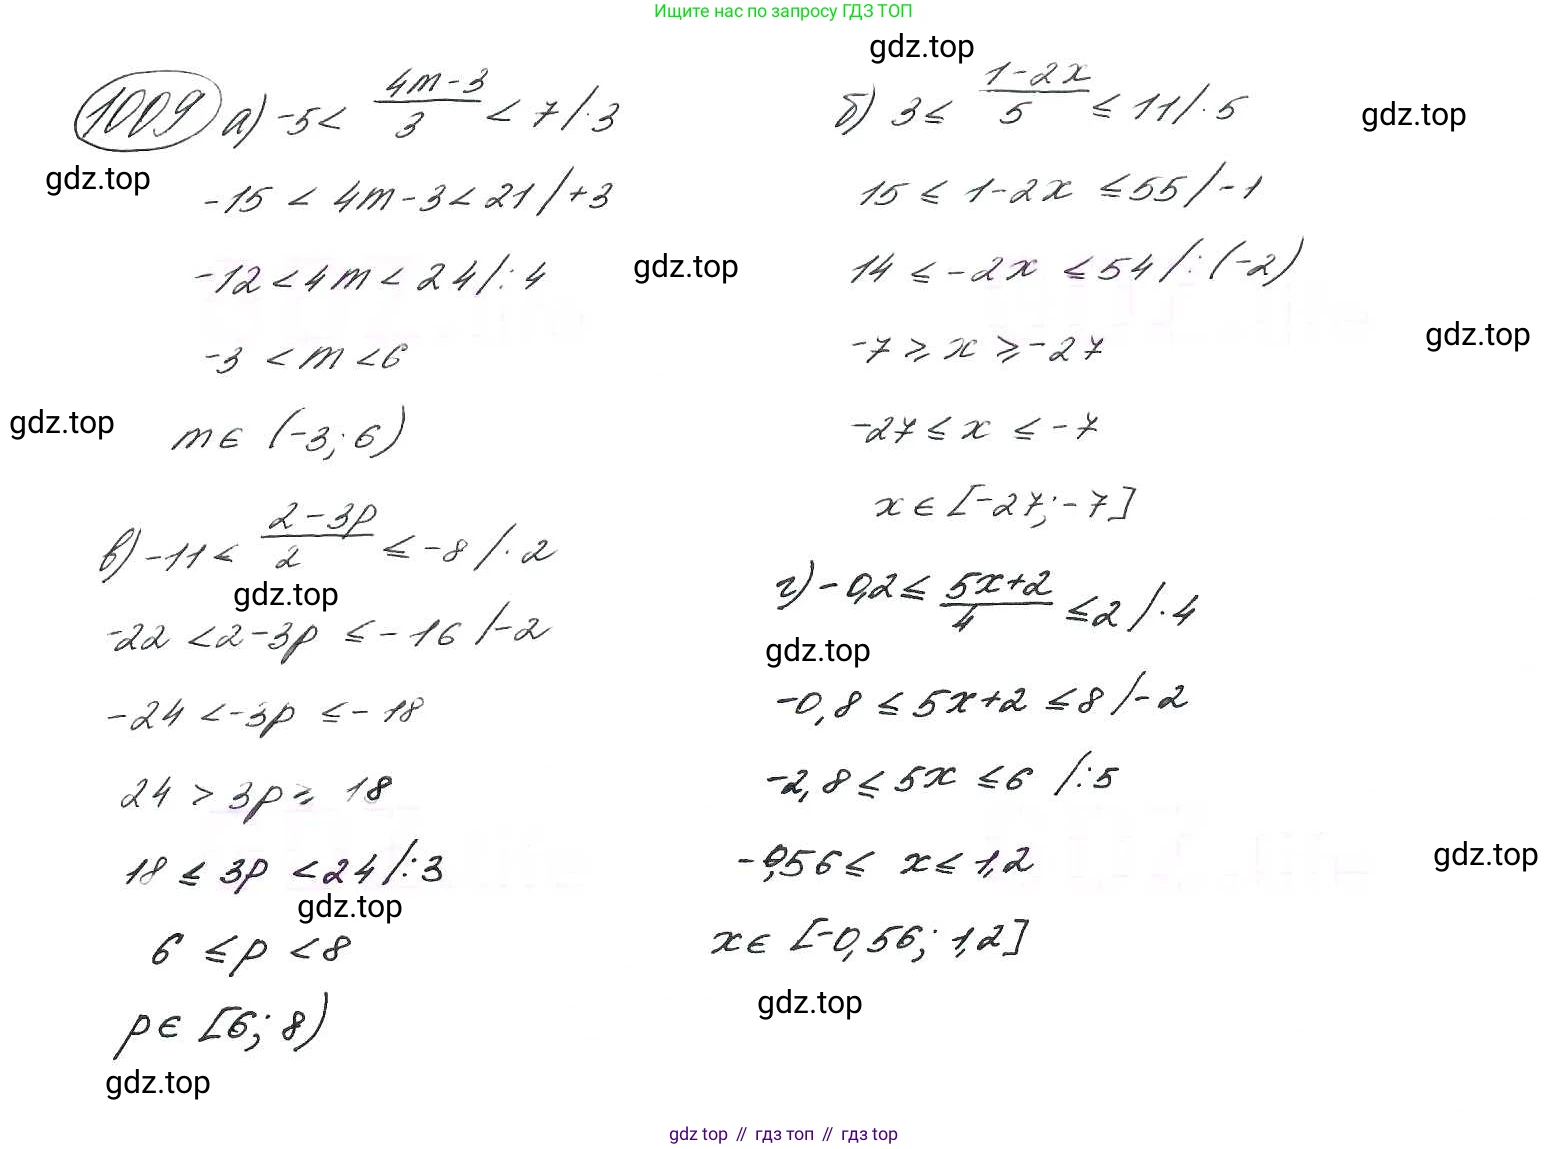 Ищите нас по запросу ГДЗ ТОП
gdz.top
1009 а) -5 < (4m-3)/3 < 7 / ·3
gdz.top
-15 < 4m-3 < 21 / +3
-12 < 4m < 24 / :4
gdz.top
-3 < m < 6
gdz.top
m ∈ (-3; 6)
б) 3 ≤ (1-2x)/5 ≤ 11 / ·5
gdz.top
15 ≤ 1-2x ≤ 55 / -1
14 ≤ -2x ≤ 54 / :(-2)
gdz.top
-7 ≥ x ≥ -27
-27 ≤ x ≤ -7
x ∈ [-27; -7]
в) -11 ≤ (2-3p)/2 ≤ -8 / ·2
gdz.top
-22 < 2-3p ≤ -16 / -2
-24 < -3p ≤ -18
24 > 3p ≥ 18
18 ≤ 3p < 24 / :3
gdz.top
6 ≤ p < 8
p ∈ [6; 8)
gdz.top
г) -0,2 ≤ (5x+2)/4 ≤ 2 / ·4
gdz.top
-0,8 ≤ 5x+2 ≤ 8 / -2
-2,8 ≤ 5x ≤ 6 / :5
-0,56 ≤ x ≤ 1,2
gdz.top
x ∈ [-0,56; 1,2]
gdz.top
gdz top // гдз топ // гдз top